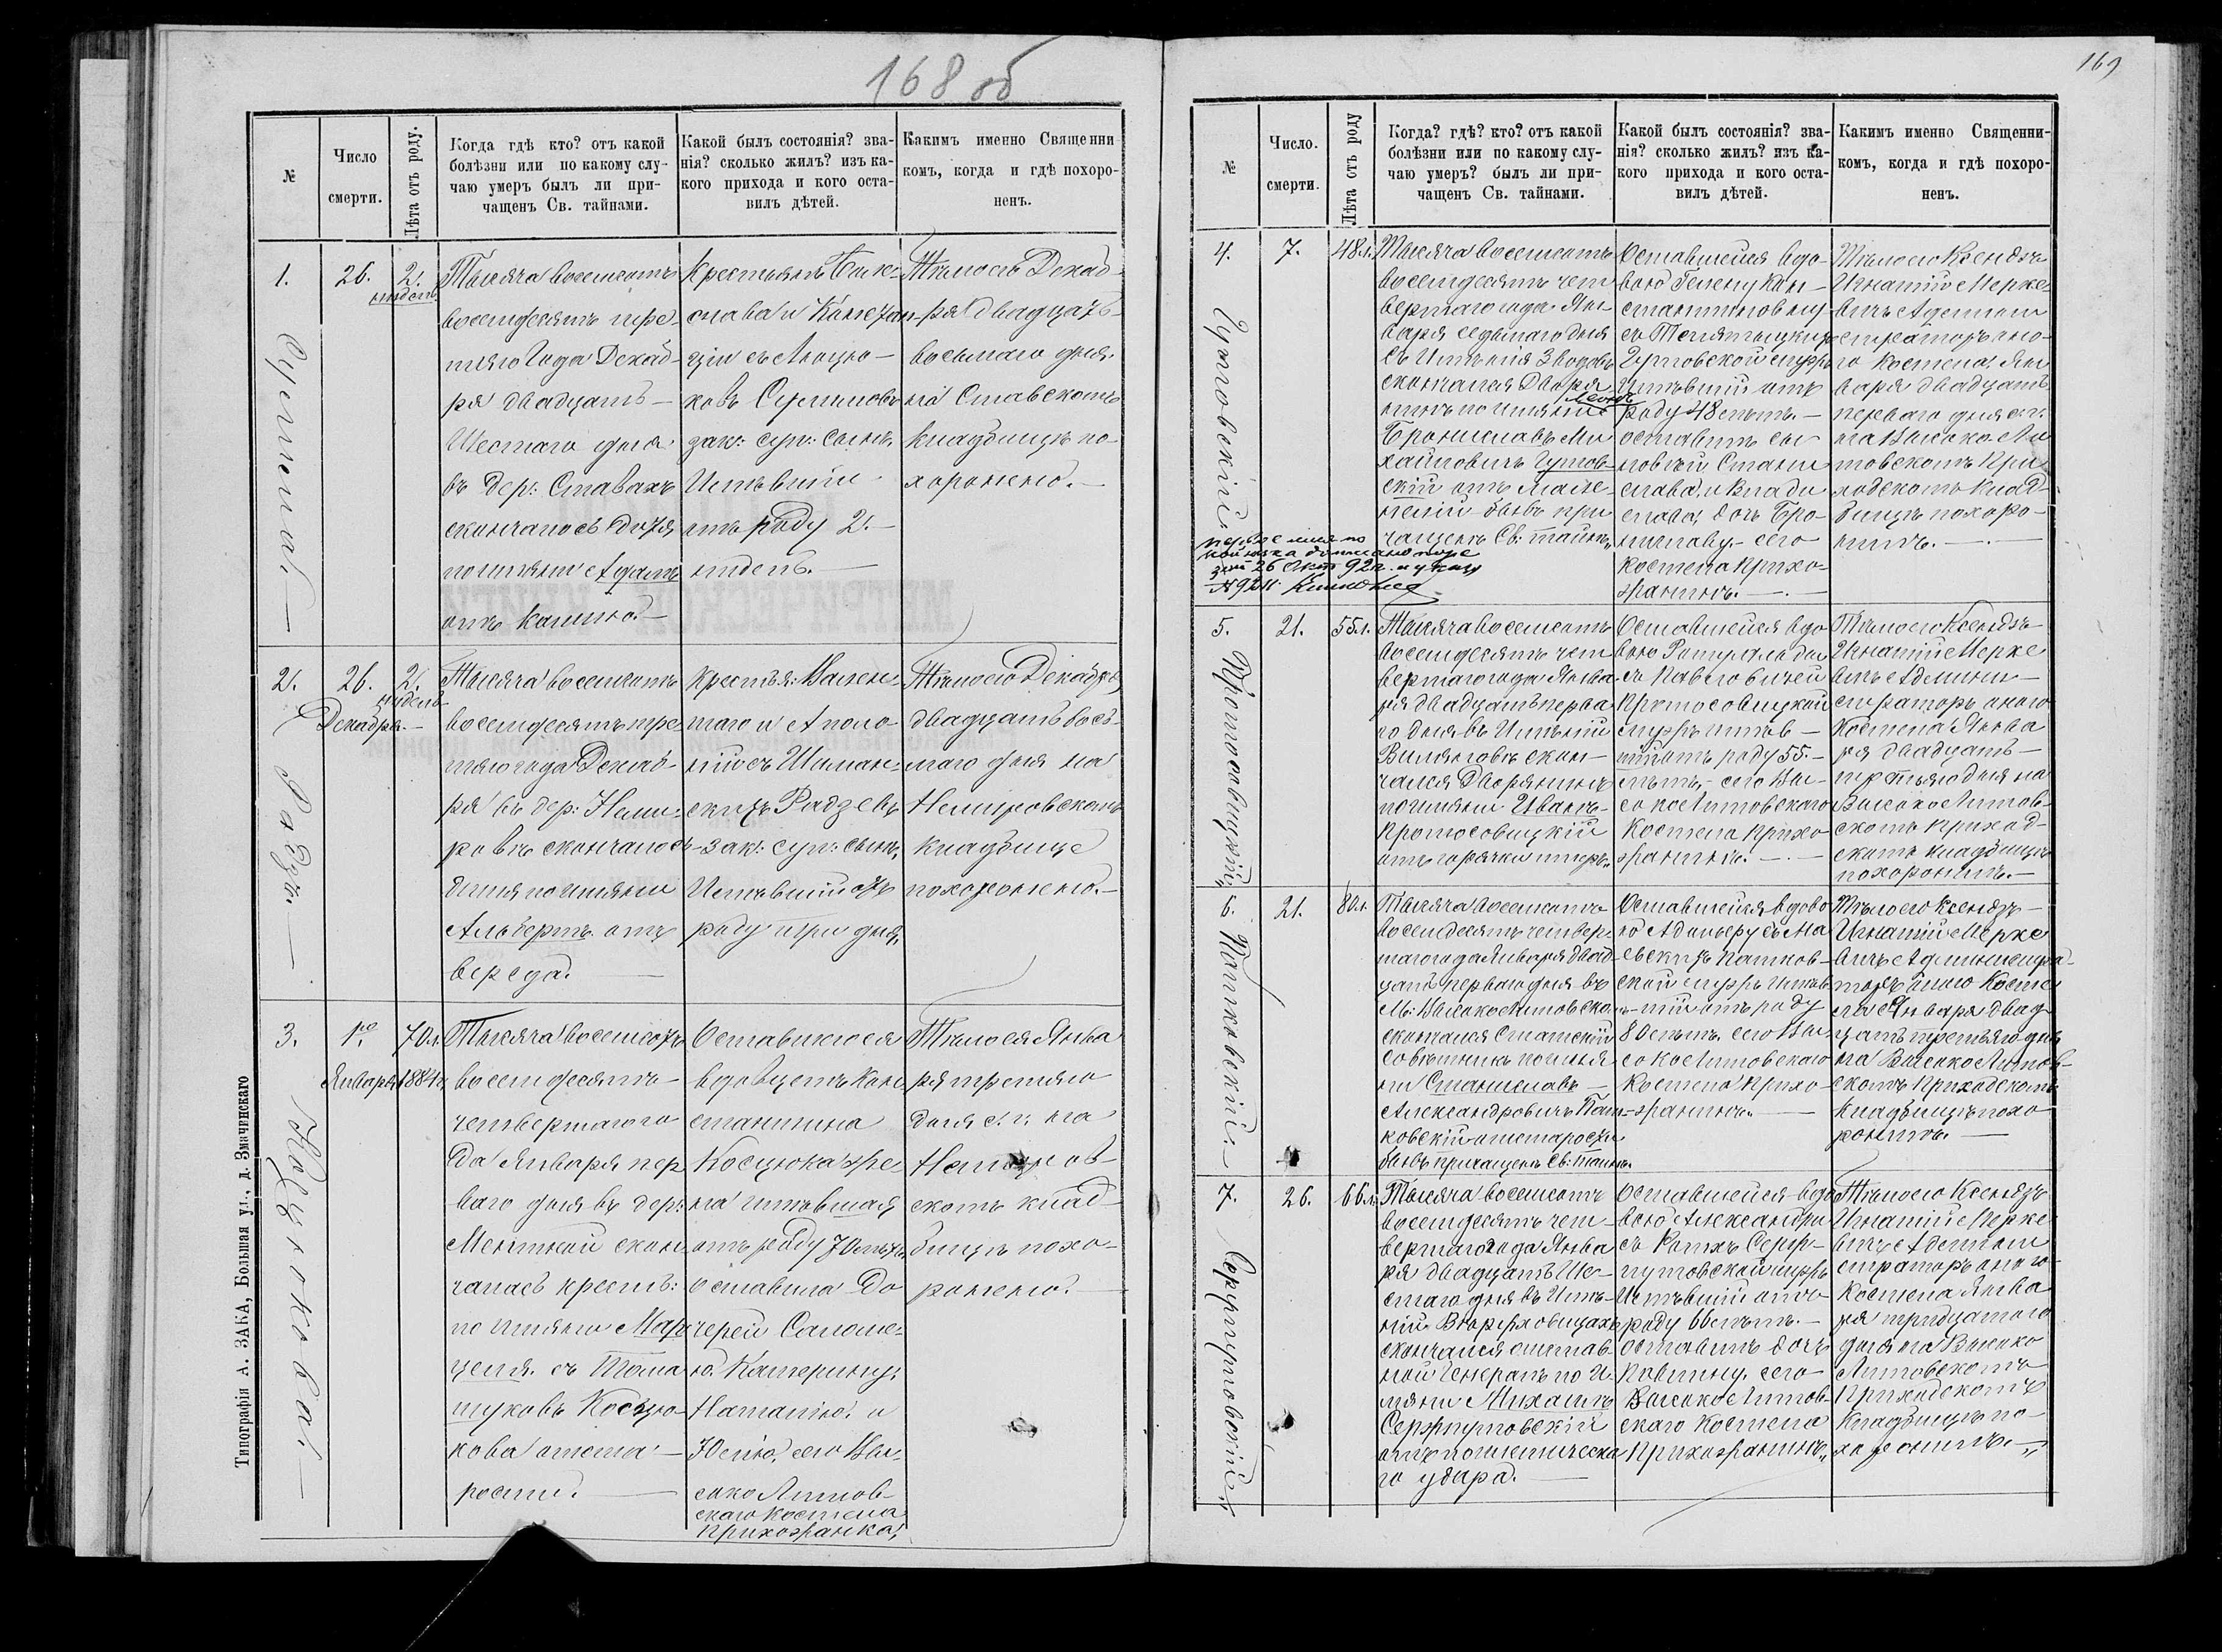 168 об
№
Число
смерти.
Лѣта отъ роду.
Когда гдѣ кто? отъ какой
болѣзни или по какому слу-
чаю умеръ былъ ли при-
чащенъ Св. тайнами.
Какой былъ состоянія? зва-
нія? сколько жилъ? изъ ка-
кого прихода и кого оста-
вилъ дѣтей.
Какимъ именно Священни
комъ, когда и гдѣ похоро-
ненъ.
1.
26.
2.
недели
Тысяча восемсотъ
восемдесятъ тре-
тяго Года Декаб-
ря двадцать
Шестаго дня
въ дер: Ставахъ
скончалось дитя
по имяни Адамъ
отъ кашлю.
Крестьянъ
слава и Констан
ціи съ
ковъ
зак: суп: сынъ,
Имѣвшій
отъ роду 2.
недель.
Тѣло его Декаб-
ря двадцать
восьмаго дня
на Ставскомъ
кладбищѣ по-
хоронено.
2.
26.
Декабря.
2.
недель
Тысяча восемсотъ
восемдесятъ тре-
тяго года Декаб-
ря въ дер: Неми-
ровкѣ скончалось
дитя по имяни
Альбертъ отъ
вереда.
Крестья: Вален-
таго и Аполо
ніи съ Шиман-
скихъ Радзевъ
зак: суп: сынъ,
Имѣвшій отъ
роду три дня,
Тѣло его Декабря
двадцать вось-
маго дня на
Немировскомъ
кладбище
похоронено.
3.
1го
Января 1884г.
70л.
Косцюкова.
Тысяча восемсотъ
восемдесятъ
четвертаго го
да Января пер
ваго дня въ дер:
скон
чалась крестъ:
по имяни Мар
целя съ Тома
шуковъ Косцю
кова отъ ста-
рости.
Оставшегося
вдовцемъ Кон
стантина
Косцюка же
на имѣвшая
отъ роду 70 лѣтъ
оставила до
черей Саломе-
ю, Катерину,
Наталію, и
Юлію, сего Вы-
соко Литов-
скаго Костела
Прихожанка,
Тѣло ея Янва
ря третяго
дня с. г. на
Немиров-
скомъ клад-
бищѣ похо-
ронено.
Типографія А. ЗАКА, Большая ул., д. Змачинскаго
169
№
Число.
смерти.
Лѣта отъ роду
Когда? гдѣ? кто? отъ какой
болѣзни или по какому слу-
чаю умеръ? былъ ли при-
чащенъ Св. тайнами.
Какой былъ состоянія? зва-
нія? сколько жилъ? изъ ка-
кого прихода и кого оста-
вилъ дѣтей.
Какимъ именно Священни-
комъ, когда и гдѣ похоро-
ненъ.
4.
7.
48л.
Гутовскій
Тысяча восемсотъ
восемдесятъ чет
вертаго года Ян-
варя седьмаго дня
въ Имѣнія Зводовъ
скончался Дворя
нинъ по имяни Леонъ
Брониславъ Ми
хайловичъ Гутов-
скій отъ
былъ при
чащенъ Св: тайнъ,
Оставшейся вдо-
вою Гелену Кон-
стантиновну
съ
Гутовской мужъ
Имѣвшій отъ
роду 48 лѣтъ.
оставилъ сы
новъ Стани
слава, и Влади
слава, дочь Бро-
ниславу.- сего
Костела прихо-
жанинъ.
Тѣло его Ксендзъ
Игнатій Мерке-
вичъ Админи
страторъ оно-
го костела, Ян
варя двадцать
перваго дня с. г.
на Высоко Ли
товскомъ При
ходскомъ клад-
бищѣ похоро-
нилъ.
первое имя по
койника дописано
26 Окт 92 г. и указу
№9211
5.
21.
55л.
Протосовицкій,
Тысяча восемсотъ
восемдесятъ чет
вертаго года Янва
ря двадцать перва
го дня въ Имѣніи
Вилямовѣ скон-
чался Дворянинъ
по имяни Иванъ
Протосовицкій
отъ горячки
Оставшейся вдо
вою Ромуальда
съ Павловичей
Протосовицкій
мужъ имѣв-
шій отъ роду 55.
лѣтъ, сего Вы-
соко Литовскаго
Костела Прихо-
жанинъ.
Тѣло его Ксендзъ
Игнатій Мерке
вичъ Админи-
страторъ оного
Костела Янва
ря двадцать
третьяго дня на
Высоко Литов-
скомъ приход-
скомъ кладбищѣ
похоронилъ.
6.
21.
80л.
Папковскій.
Тысяча восемсотъ
восемдесятъ четвер
таго года Января двад
цать перваго дня въ
М: Высоко Литовскѣ
скончался Статскій
совѣтникъ по имя
ни Станиславъ
Александровичъ Пап
ковскій отъ старости
былъ причащенъ Св: тайнъ.
Оставшейся вдово
ю
скій мужъ имѣв
шій отъ роду
80 лѣтъ сего Вы-
соко Литовского
Костела Прихо-
жанинъ.
Тѣло его Ксендзъ
Игнатій Мерке
вичъ Администра-
торъ оного Косте
ла Января двад
цать третьяго дня
на Высоко Литов-
скомъ Приходскомъ
Кладбищѣ похо
ронилъ.
7.
26.
66л.
Сержпутовскій,
Тысяча восемсотъ
восемдесятъ чет-
вертаго года Янва
ря двадцать Ше-
стаго дня въ Имѣ-
ніи
скончался отстав-
ной Генералъ по и-
мяни Михаилъ
Сержпутовскій
отъ апоплектическа
го удара.
Оставшейся вдо
вою Александри
съ Серж-
путовской мужъ
Имѣвшій отъ
роду 66 лѣтъ.
оставилъ дочь
Павлину. сего
Высоко Литов-
скаго Костела
Прихожанинъ,
Тѣло его Ксендзъ
Игнатій Мерке
вичъ Админи
страторъ оного
Костела Янва
ря тридцатого
дня на Высоко
Литовскомъ
Приходскомъ
Кладбищѣ по-
хоронилъ.